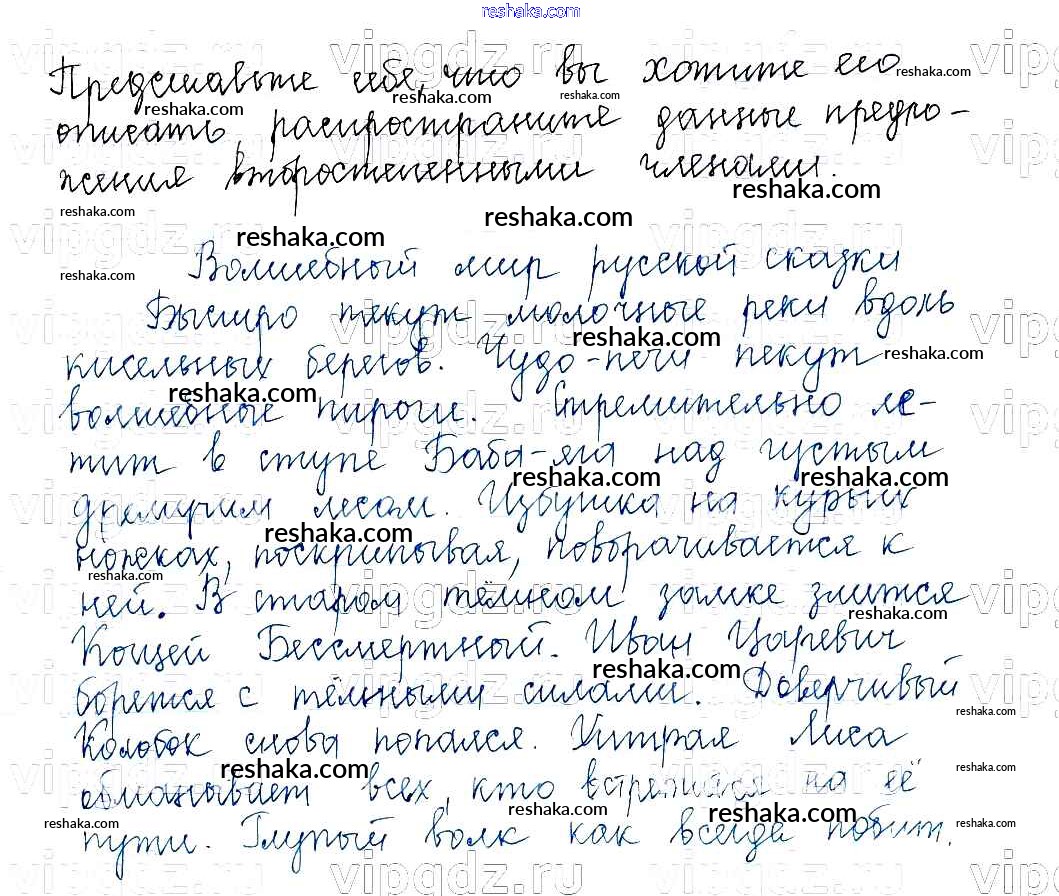 reshaka.com
Представьте себе, что вы хотите его
описать, распространите данные предло-
жения второстепенными членами.
Волшебный мир русской сказки
Быстро текут молочные реки вдоль
кисельных берегов. Чудо-печи пекут
волшебные пироги. Стремительно ле-
тит в ступе Баба-яга над густым
дремучим лесом. Избушка на курьих
ножках, поскрипывая, поворачивается к
ней. В старом тёмном замке злится
Кощей Бессмертный. Иван Царевич
борется с тёмными силами. Доверчивый
Колобок снова попался. Хитрая Лиса
обманывает всех, кто встретился на её
пути. Глупый волк как всегда побит.